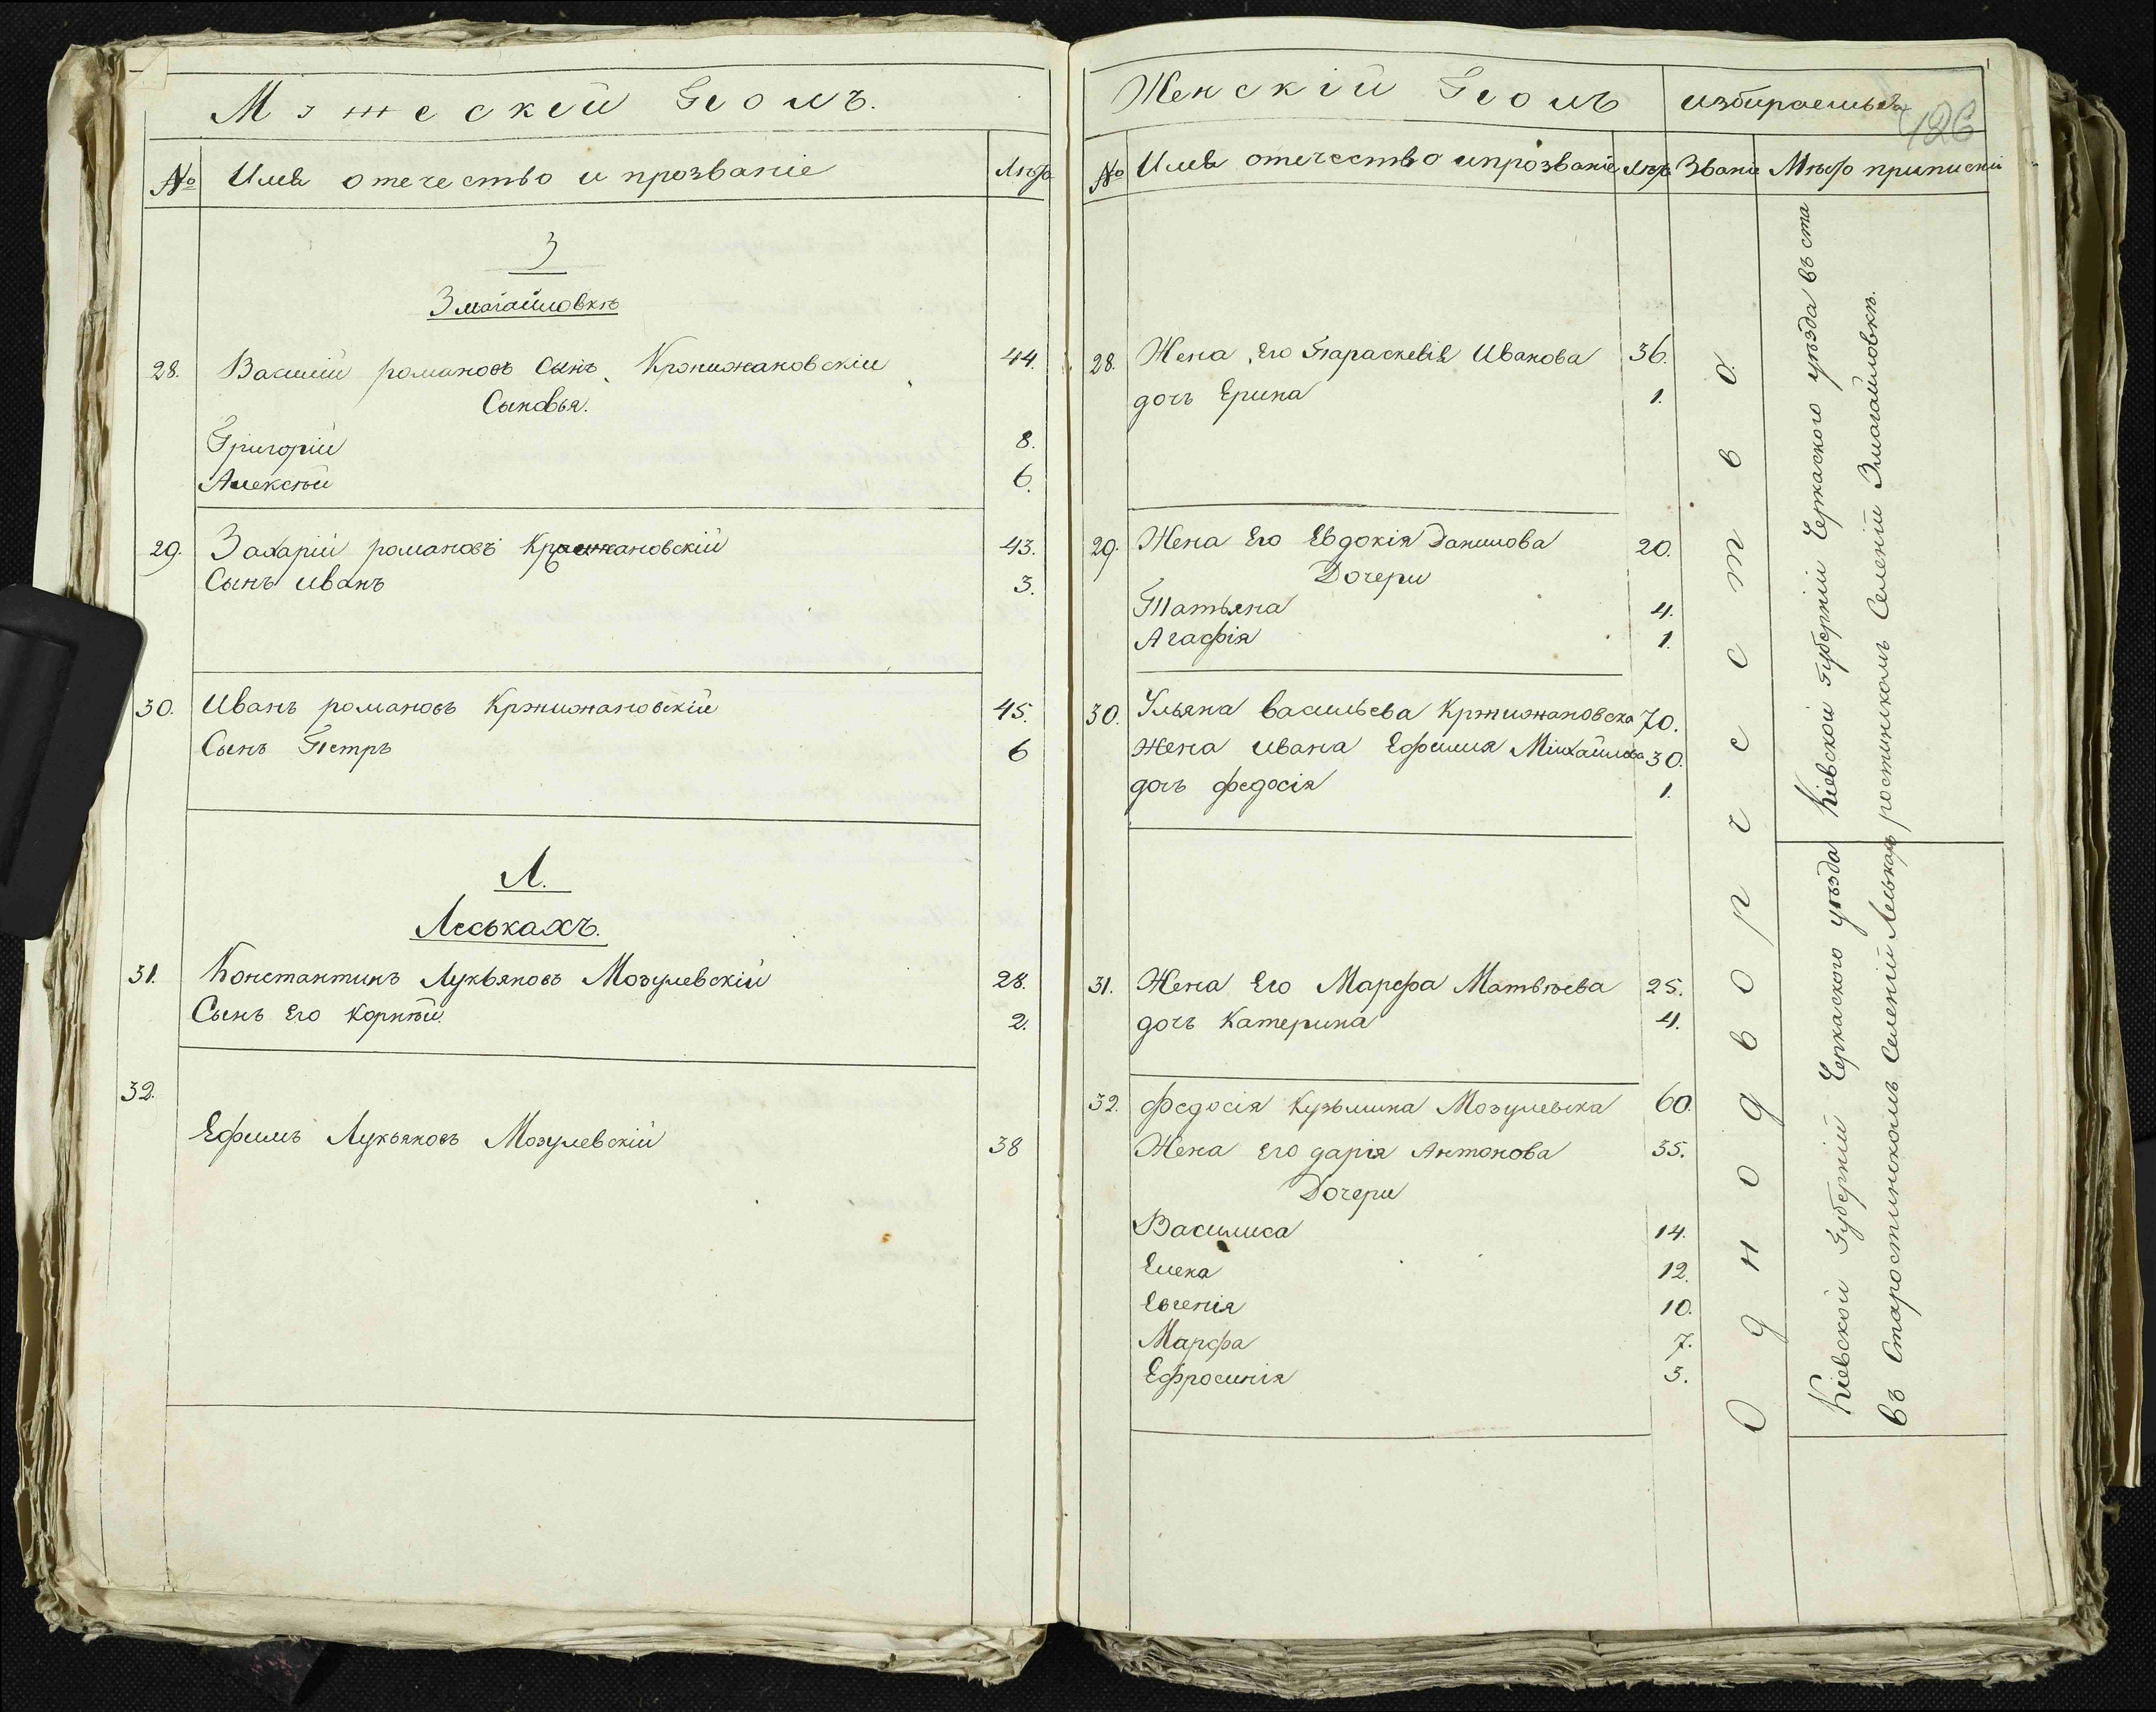 Мужескій Полъ.
№ Имя отечество и прозваніе Лѣта
З
Змагайловкѣ
28. Василій романовъ Сынъ Кржижановскій 44.
Сыновья.
Григорій 8.
Алексѣй 6.
29. Захарій романовъ Кржижановскій 43.
Сынъ иванъ 3.
30. Иванъ романовъ Кржижановскій 45.
Сынъ Петръ 6
Л.
Леськахъ.
31. Константинъ Лукьяновъ Мозулевскій 28.
Сынъ Его Корнѣй. 2.
32.
Ефимъ Лукьяновъ Мозулевскій 38
Женскій Полъ избираемыя
126
№ Имя отечество и прозваніе лѣта Званіе Мѣсто приписки
28. Жена Его Параскевія Иванова 36.
дочь Ерина 1.
29. Жена Его Евдокія Данилова 20.
Дочери
Татьяна 4.
Агафія 1.
30. Ульяна васильева Кржижановска 70.
Жена ивана Ефимия Михайлова 30.
дочь федосія 1.
31. Жена Его Марфа Матвѣева 25.
дочь Катерина 4.
32. федосія Кузьмина Мозулевска 60.
Жена Его дарія Антонова 35.
Дочери
Василиса 14.
Елена 12.
Евгенія 10.
Марфа 7.
Ефросинія 5.
Однодворчество.
Кіевской губерніи Черкаского уѣзда въ ста
ростинкомъ Селеніи Змагайловкѣ.
Кіевской Губерніи Черкаского уѣзда
въ Старостинкомъ Селеніи Леськахъ